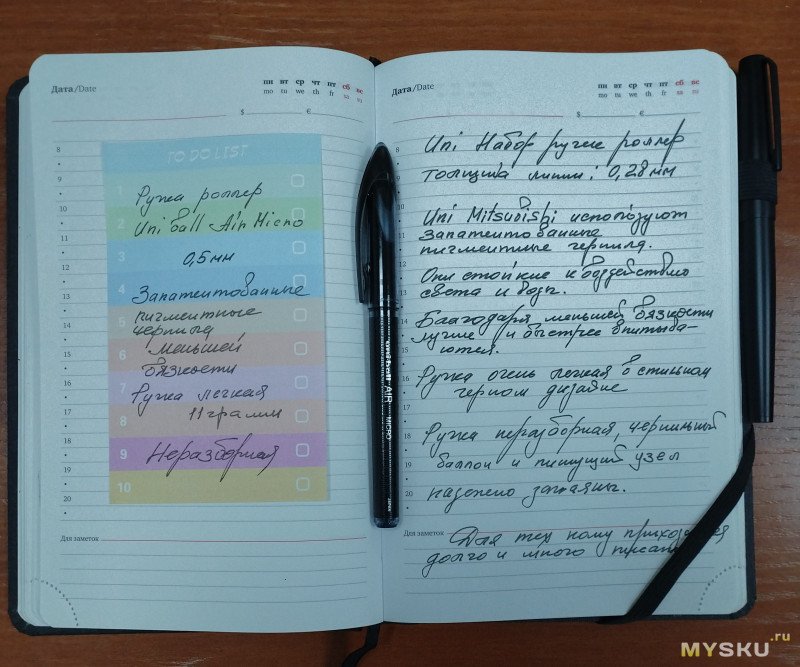 Дата/Date
пн вт ср чт пт сб вс
mo tu we th fr sa su
$ €
TO DO LIST
8
9
10
11
12
13
14
15
16
17
18
19
20
1
Ручка роллер
2
Uni ball Air Micro
3
0,5мм
4
Запатентованные
5
пигментные
чернила
6
меньшей
вязкости
7
Ручка легкая
8
11 грамм
9
Неразборная
10
Для заметок
uni-ball AIR MICRO
Дата/Date
пн вт ср чт пт сб вс
mo tu we th fr sa su
$ €
8
9
10
11
12
13
14
15
16
17
18
19
20
Uni Набор ручек роллер
толщина линии: 0,28мм
Uni Mitsubishi используют
запатентованные
пигментные чернила.
Они стойкие к воздействию
света и воды.
Благодаря меньшей вязкости
лучше и быстрее впитыва-
ются.
Ручка очень легкая в стильном
черном дизайне
Ручка неразборная, чернильный
баллон и пишущий узел
надежно запаяны.
Для заметок
Для тех кому приходится
долго и много писать
MYSKU.ru